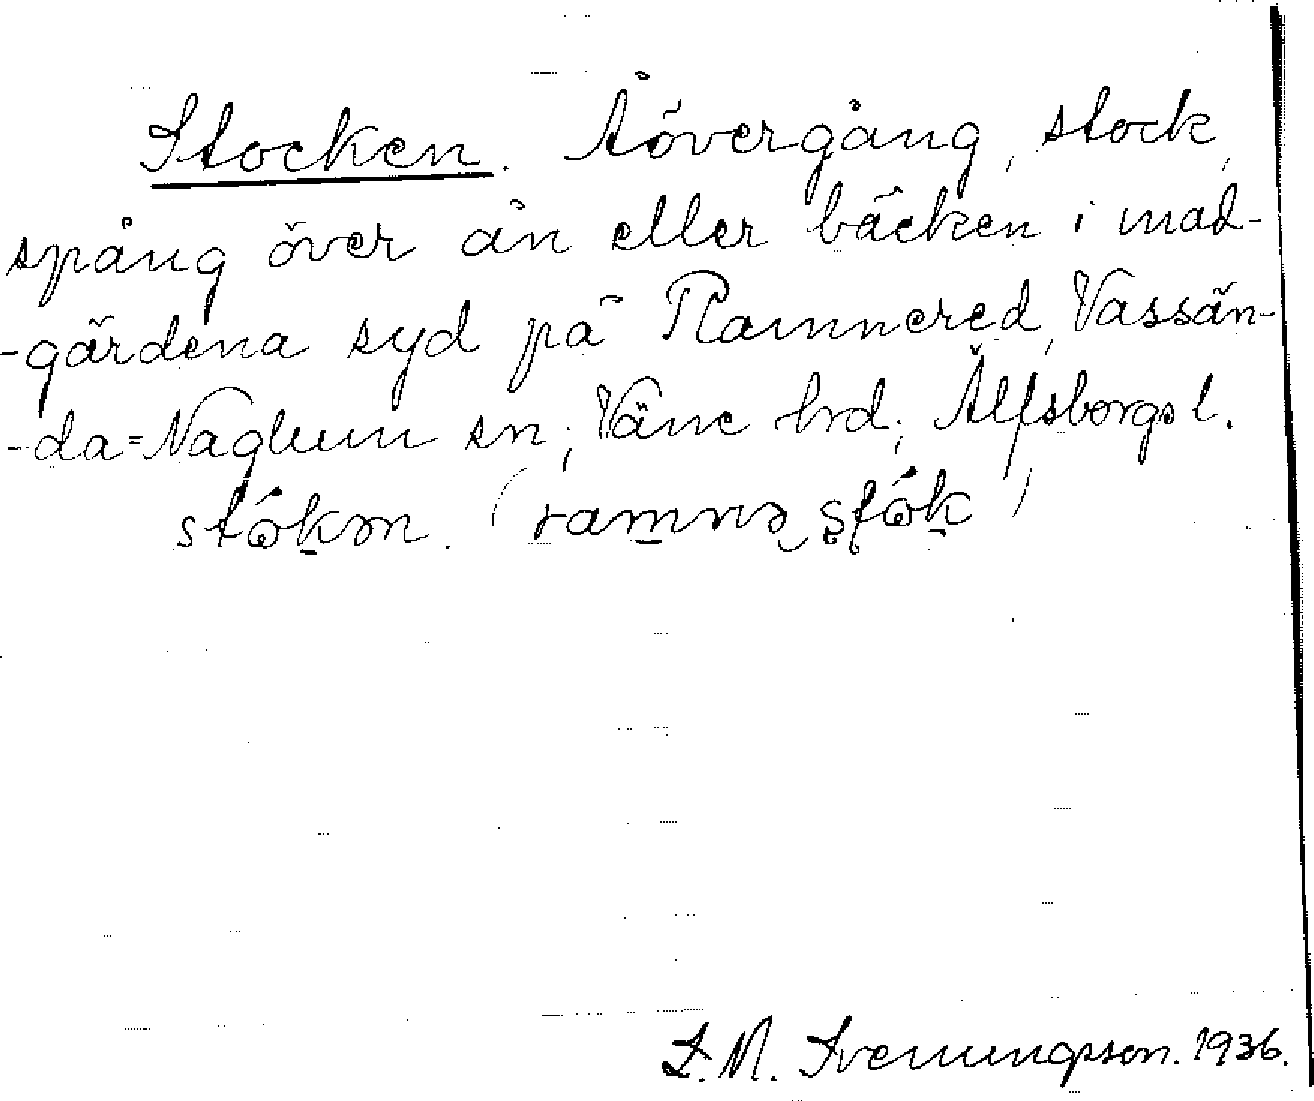 Stocken. Åövergång, stock,
spång över ån eller bäcken i mad-
-gärdena syd på Ramnered, Vassän-
-da=Naglum sn; Väne hrd; Älfsborgs l.
stókən. (ramnə stók)
S. M. Svenungsson. 1936.